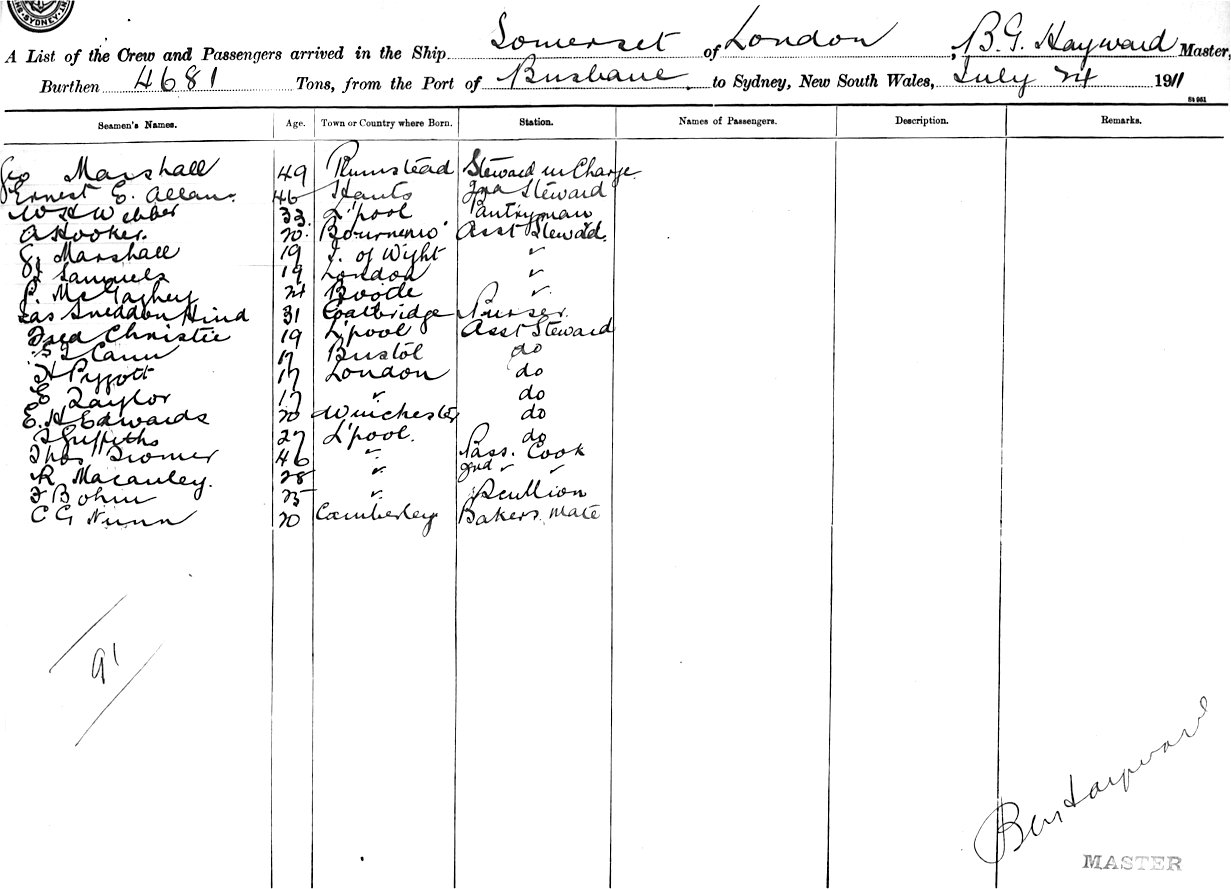 SYDNEY
A List of the Crew and Passengers arrived in the Ship Somerset of London, B. G. Hayward Master,
Burthen 4681 Tons, from the Port of Brisbane to Sydney, New South Wales, July 24 1911
St 961
Seamen's Names. Age. Town or Country where Born. Station. Names of Passengers. Description. Remarks.
Geo Marshall 49 Plumstead Steward in Charge
Ernest E. Allan. 46 Hants 2nd Steward
W H Webber 33 L'pool Pantryman
A Hooker. 20 Bournemo' Asst Steward.
G. Marshall 19 I. of Wight "
Samuels 19 London "
P. McGaghey 21 Bootle "
Jas Sneddon Hind 31 Coatbridge Purser.
Fred Christie 19 L'pool Asst Steward
Cann 17 Bristol do
H Pyggott 17 London do
E Taylor 17 " do
E. H Edwards 20 Winchester do
Griffiths 27 L'pool. do
Thos 46 " Pass. Cook
R Macauley. 28 " 2nd " "
F Bohm 25 " Scullion
C G Nunn 20 Camberley Bakers Mate
91
Hayward
MASTER